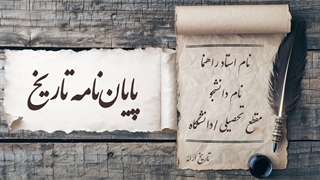 پایان نامه تاریخ
نام استاد راهنما
نام دانشجو
مقطع تحصیلی / دانشگاه
تاریخ ارائه